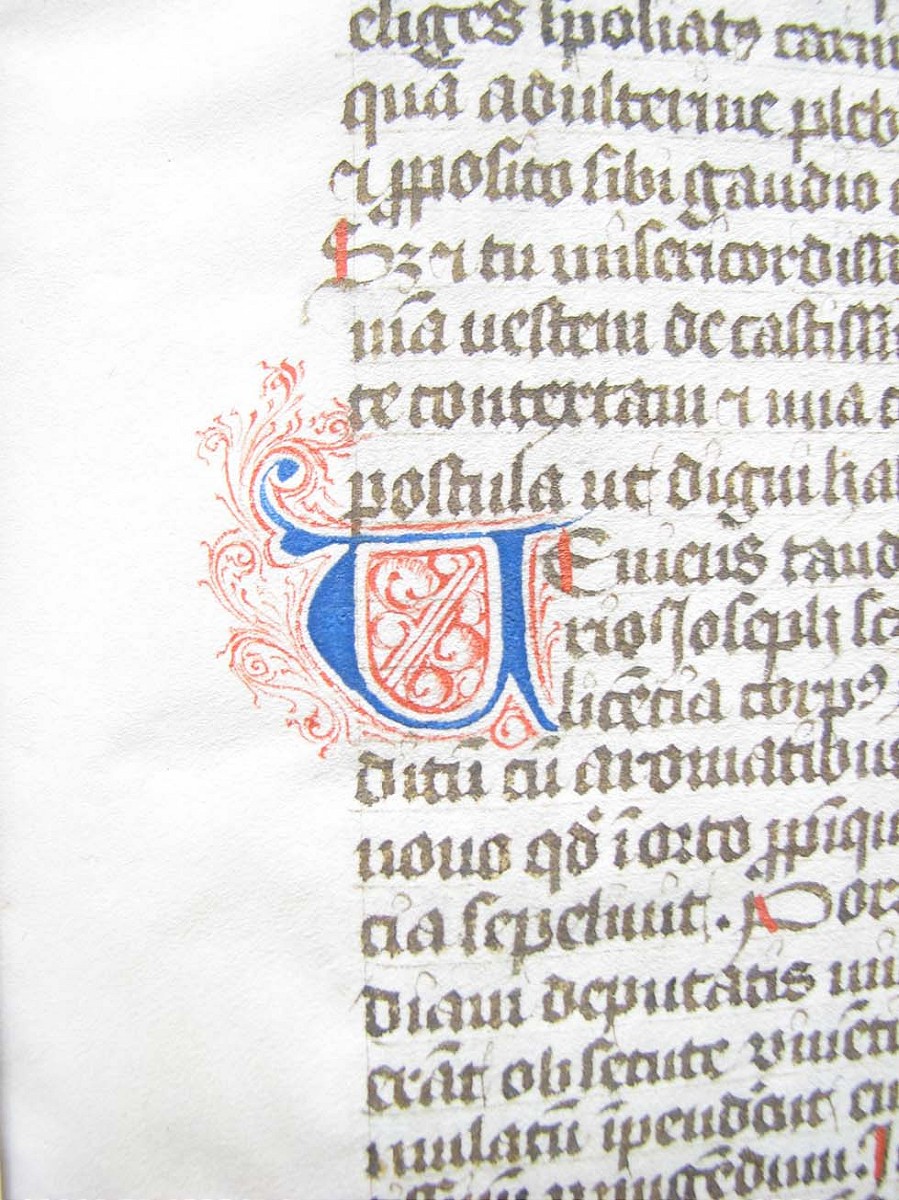 eliges spoliatꝰ carni
quā adulterine pleb
⁊ ꝓposito sibi gaudio
Sꝫ ⁊ tu misericordissi
mā uestem de castissi
te contextam ⁊ una
postula ut digni ha
UEniens tand
rio Joseph
licēcia corpꝰ
ditū cū aromatibus
nouo qd̓ ī orto ꝓpīqu
cia sepeliuit. Por
diam deputatis
erāt obsecute viuēti
mulatū īpend̓cūt